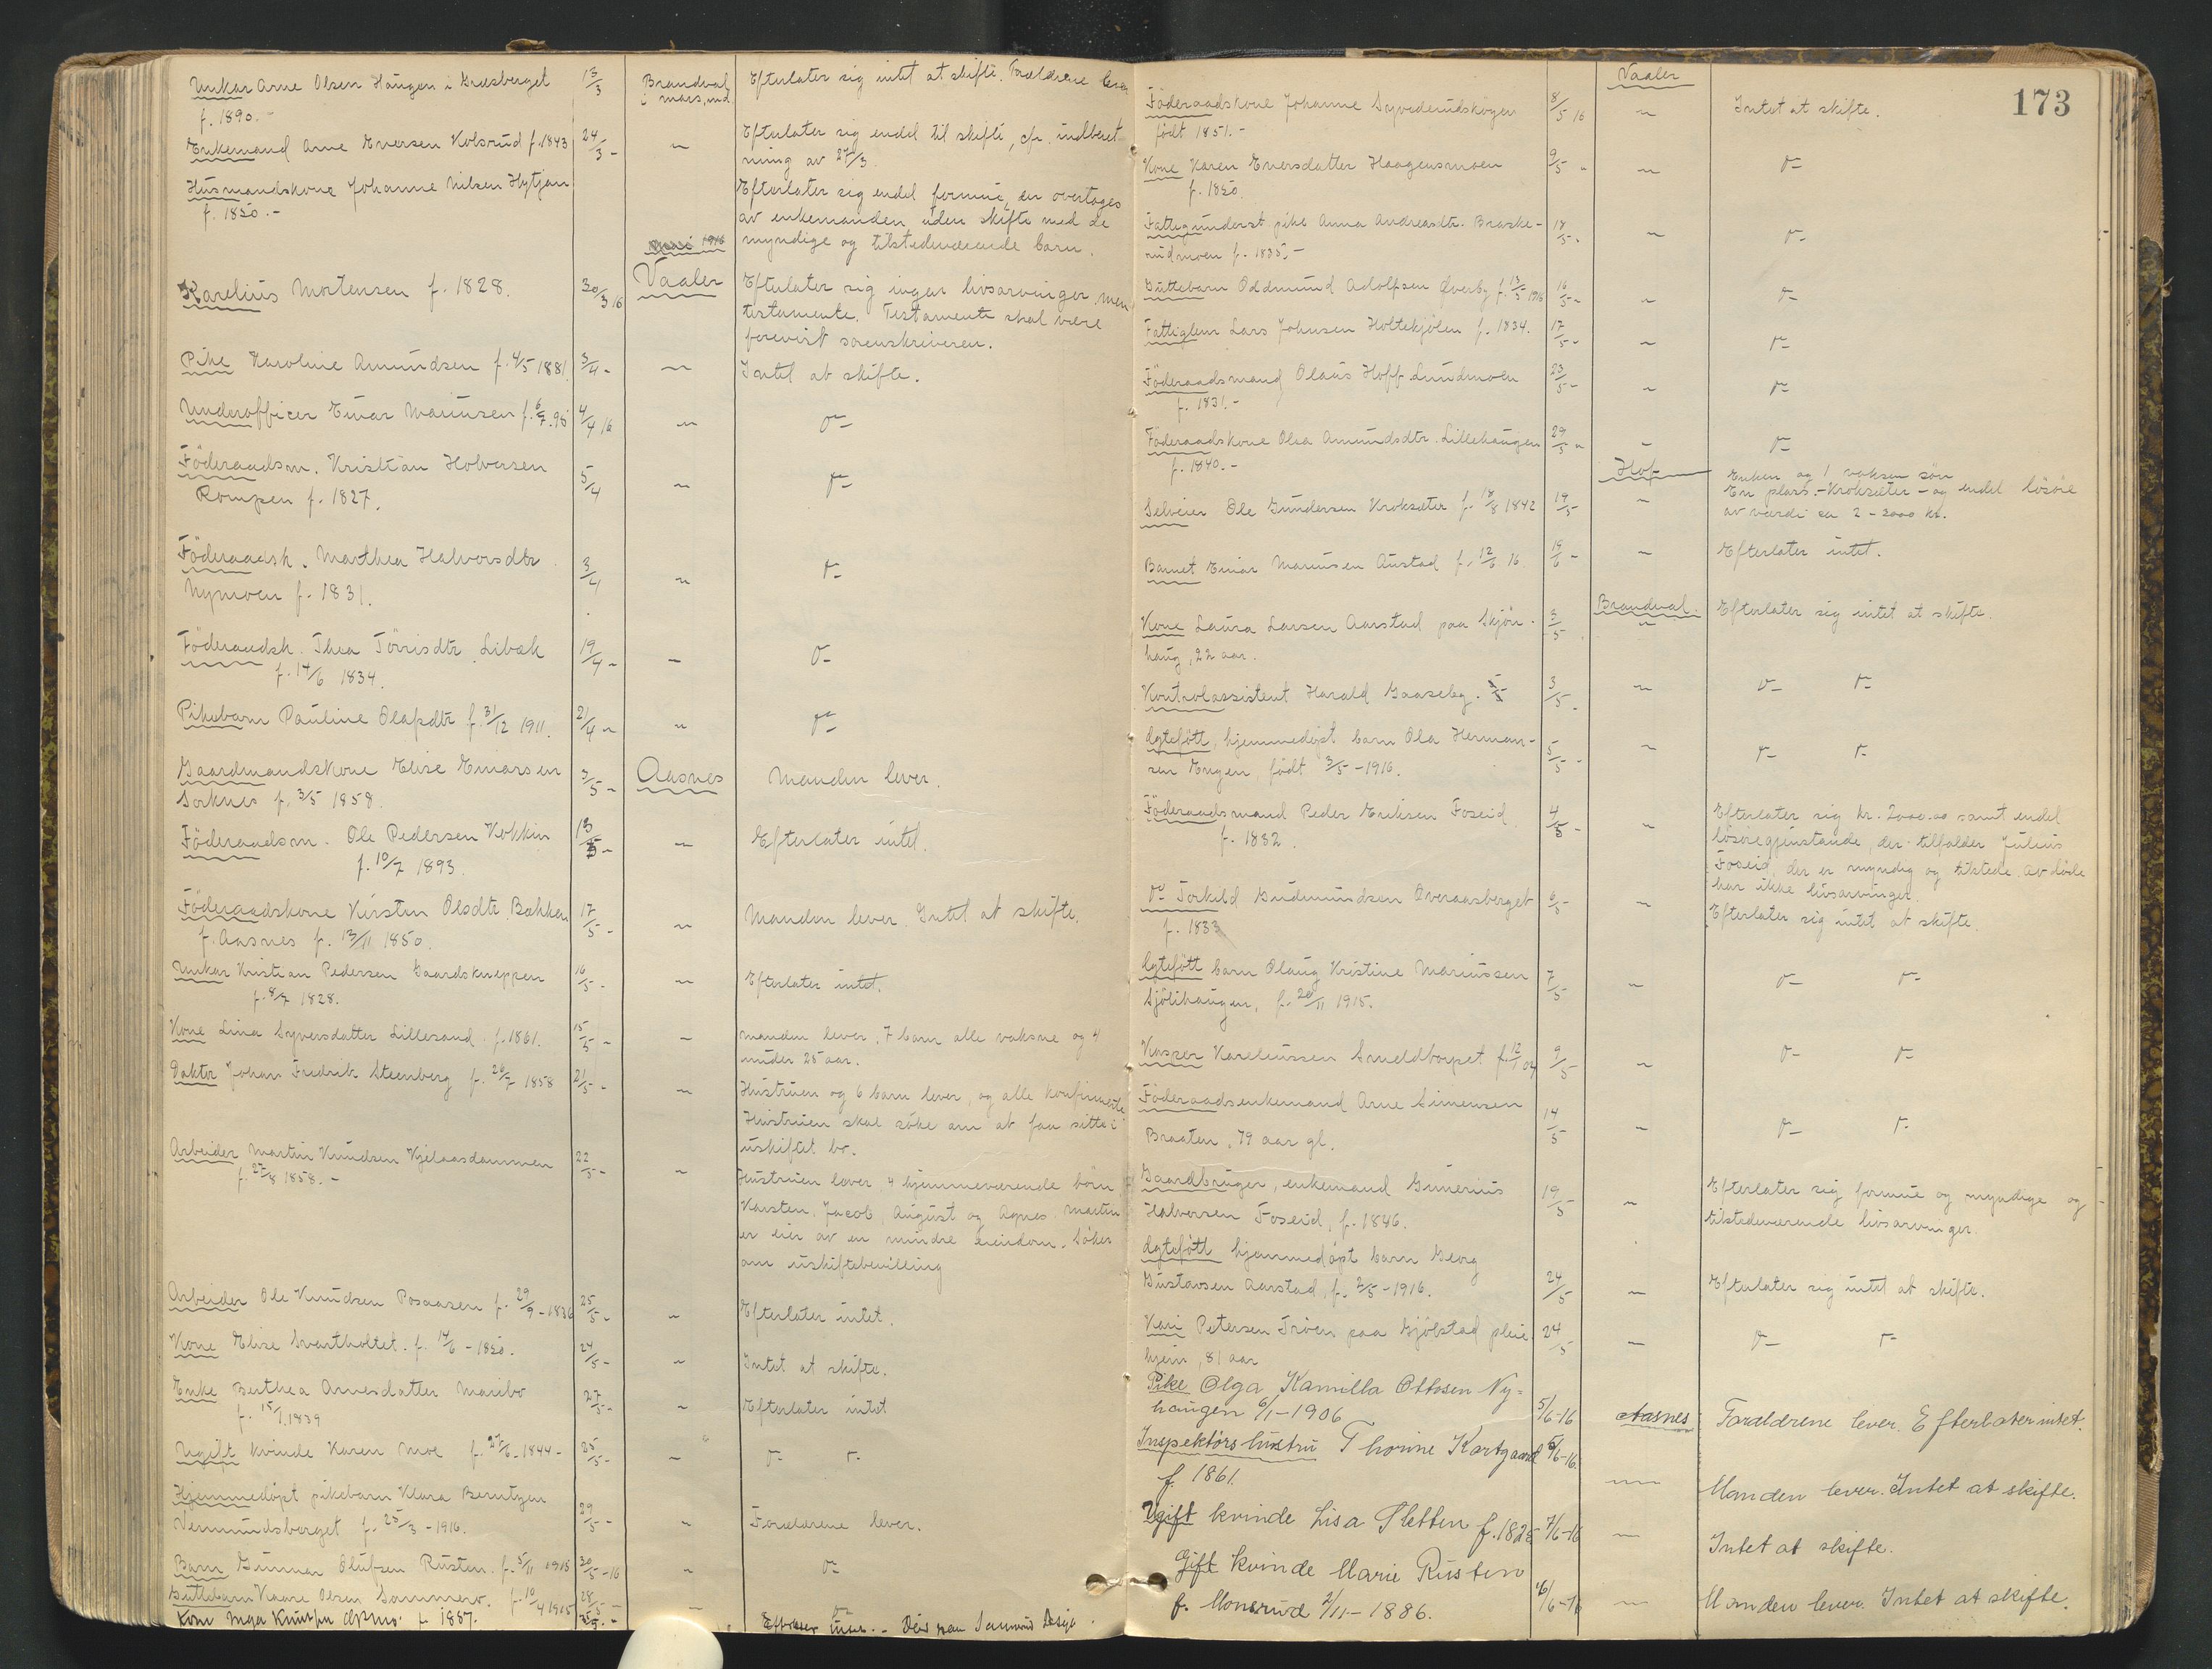 Unkar Arne Olsen Haugen i Gräsberget 13/3 Brandval Efterlater sig intet at skifte. Foreldrene
f. 1890.- i mars md.
Enkemand Arne Eversen Kolsrud f. 1843 24/3 - " Efterlater sig endel til skifte, cfr. indberet-
ning av 27/3.
Husmandskone Johanne Nilsen Hytjan Efterlater sig endel formue, der overtages
f. 1850.- av enkemanden uden skifte med de
mai 1916 myndige og tilstedeværende barn.
Karelius Mortensen f. 1828. 30/3 16 Vaaler Efterlater sig ingen livsarvinger, men
testamente. Testamente skal være
forevist sorenskriveren.
Pike Karoline Amundsen f. 4/5 1881. 3/4 - " Intet at skifte.
Underofficer Einar Mariusen f. 6/7.95 4/4 16 " do
Föderaadsm. Kristian Holversen 5/4 " do
Rompen f. 1827.
Föderaadsk. Marthea Halvorsdtr 3/4 " do
Nymoen f. 1831.
Föderaadsk. Thea Törrisdtr Libak 19/4 - " do
f. 14/6 1834.
Pikebarn Pauline Olafsdtr f. 31/12 1911. 21/4 - " do
Gaardmandskone Elise Einarsen 3/5 - Aasnes Manden lever.
Soknes f. 3/5 1858.
Föderaadsm. Ole Pedersen Kokkin 13/5 - " Efterlater intet.
f. 10/7 1893.
Föderaadskone Kirsten Olsdtr. Bakken 17/5 - " Manden lever. Intet at skifte.
f. Aasnes f. 13/11 1850.
Unkar Kristian Pedersen Gaardskneppen 16/5 - " Efterlater intet.
f. 8/7 1828.
Kone Lina Syversdatter Lillesand f. 1861. 15/5 - " manden lever, 7 barn alle voksne og 4
under 25 aar.
Doktor Johan Fredrik Steenberg f. 20/7 1858 21/5 - " Hustruen og 6 barn lever, og alle konfirmerte
Hustruen skal söke om at faa sitte i
uskiftet bo.
Arbeider Martin Knudsen Kjelaasdammen 22/5 - " Hustruen lever, 4 hjemmeværende börn,
f. 27/8 1858.- Karsten, Jacob, August og Agnes. Martin
er eier av en mindre eiendom. Söker
om uskiftebevilling
Arbeider Ole Knudsen Posaasen f. 29/9 - 1836 25/5 - " Efterlater intet.
Kone Elise Svartholtet. f. 14/6 - 1850. 24/5 - " Intet at skifte.
Enke Berthea Arnesdatter Maribo 27/5 - " Efterlater intet
f. 15/1.1839
Ugift kvinde Karen Moe f. 27/6 - 1844 - 25/5 - " do do
Hjemmedöpt pikebarn Klara Berntzen 29/5 - " Foreldrene lever.
Vermundsberget f. 25/3 - 1916.
Barn Gunnar Olufsen Rusten. f. 5/11 1915 30/5 - 16 " do
Guttebarn Kaare Olsen Sommero. f. 10/4 1915 28/5 - " do
Kone Inga Knutsen f. 1887.

173
Vaaler
Föderaadskone Johanne Syverudskogen 8/5 16 " Intet at skifte.
födt 1851.-
Kone Karen Eversdatter Haagensmoen 9/5 - " do
f. 1850.
Fattigunderst. pike Anna Andreasdtr. Braske- 18/5 - " do
rudmoen f. 1835.-
Guttebarn Oddmund Adolfsen Överby f. 13/5 1916 16/5 - " do
Fattiglem Lars Johnsen Holtekjölen f. 1834. 17/5 - " do
Föderaadsmand Olaus Hoff Lundmoen 23/5 - " do
f. 1831.-
Föderaadskone Olea Amundsdtr. Lillehaugen 29/5 - " do
f. 1840.-
Hof Enken og 1 voksen sön
Selveier Ole Gundersen Kroksæter f. 18/8 1842 19/5 - " En plass.-Kroksæter- og endel lösöre
av værdi ca 2 - 3000 kr.
Barnet Einar Mariusen Austad f. 12/6 16. 19/6 - " Efterlater intet.
Kone Laura Larsen Aarstad paa Skjön- 3/5 - Brandval. Efterlater sig intet at skifte.
haug, 22 aar.
Kontrolassistent Harald Gaaseby. 3/5 - " do do
Egtefött, hjemmedöpt barn Ola Herman- 5/5 - " do do
sen Engen, födt 3/5 - 1916.
Föderaadsmand Peder Eriksen Foseid 4/5 - " Efterlater sig kr. 2000.00 samt endel
f. 1832. lösöregjenstande, der tilfalder Julius
Foseid, der er myndig og tilstede. Avdöde
har ikke livsarvinger.
do Torkild Gudmundsen Overaasberget 6/5 - " Efterlater sig intet at skifte.
f. 1833
Egtefött barn Olaug Kristine Mariussen 7/5 - " do do
Sjölihaugen, f. 20/11 1915.
Kasper Kareliussen Smeldtorpet f. 12/1 04 9/5 " do do
Föderaadsenkemand Arne Simensen 14/5 " do do
Braaten, 79 aar gl.
Gaardbruger, enkemand Gunerius 19/5 " Efterlater sig formue og myndige og
Halversen Foseid, f. 1846. tilstedeværende livsarvinger.
Egtefött hjemmedöpt barn Georg
Gustavsen Aarstad, f. 2/5 - 1916. 24/5 " Efterlater sig intet at skifte.
Kari Petersen paa Gjölstad pleie- 24/5 " do do
hjem, 81 aar
Pike Olga Kamilla Ottosen Ny-
haugen 6/1 - 1906 5/6-16 Aasnes Foreldrene lever. Efterlater intet.
Inspektörs hustru Thorine Kartgaard 5/6-16. " Manden lever. Intet at skifte.
f. 1861.
Ugift kvinde Lisa Sletten f. 1828 7/6-16 " Intet at skifte.
Gift kvinde Marie Rusten
f. Monsrud 2/11 - 1886. 10/6-16 " Manden lever. Intet at skifte.